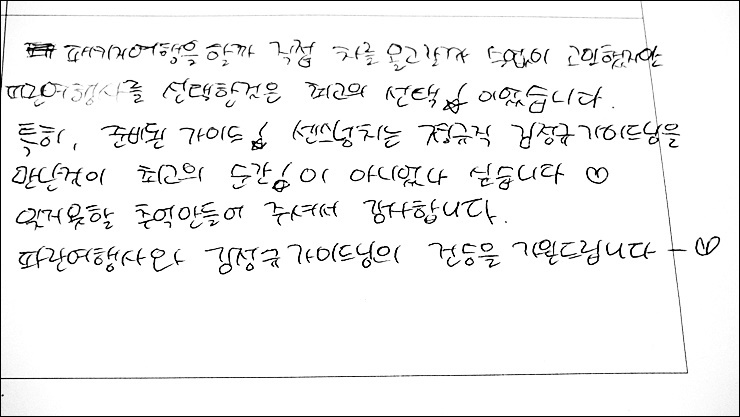 패키지여행을 할까 직접 차를 몰고갈까 수없이 고민했지만
파란여행사를 선택한것은 최고의 선택👍이었습니다.
특히, 준비된 가이드👍 센스넘치는 정규직 김정규가이드님을
만난것이 최고의 순간👍이 아니었나 싶습니다 ♡
잊지못할 추억만들어 주셔서 감사합니다.
파란여행사와 김정규가이드님의 건승을 기원드립니다 - ♡